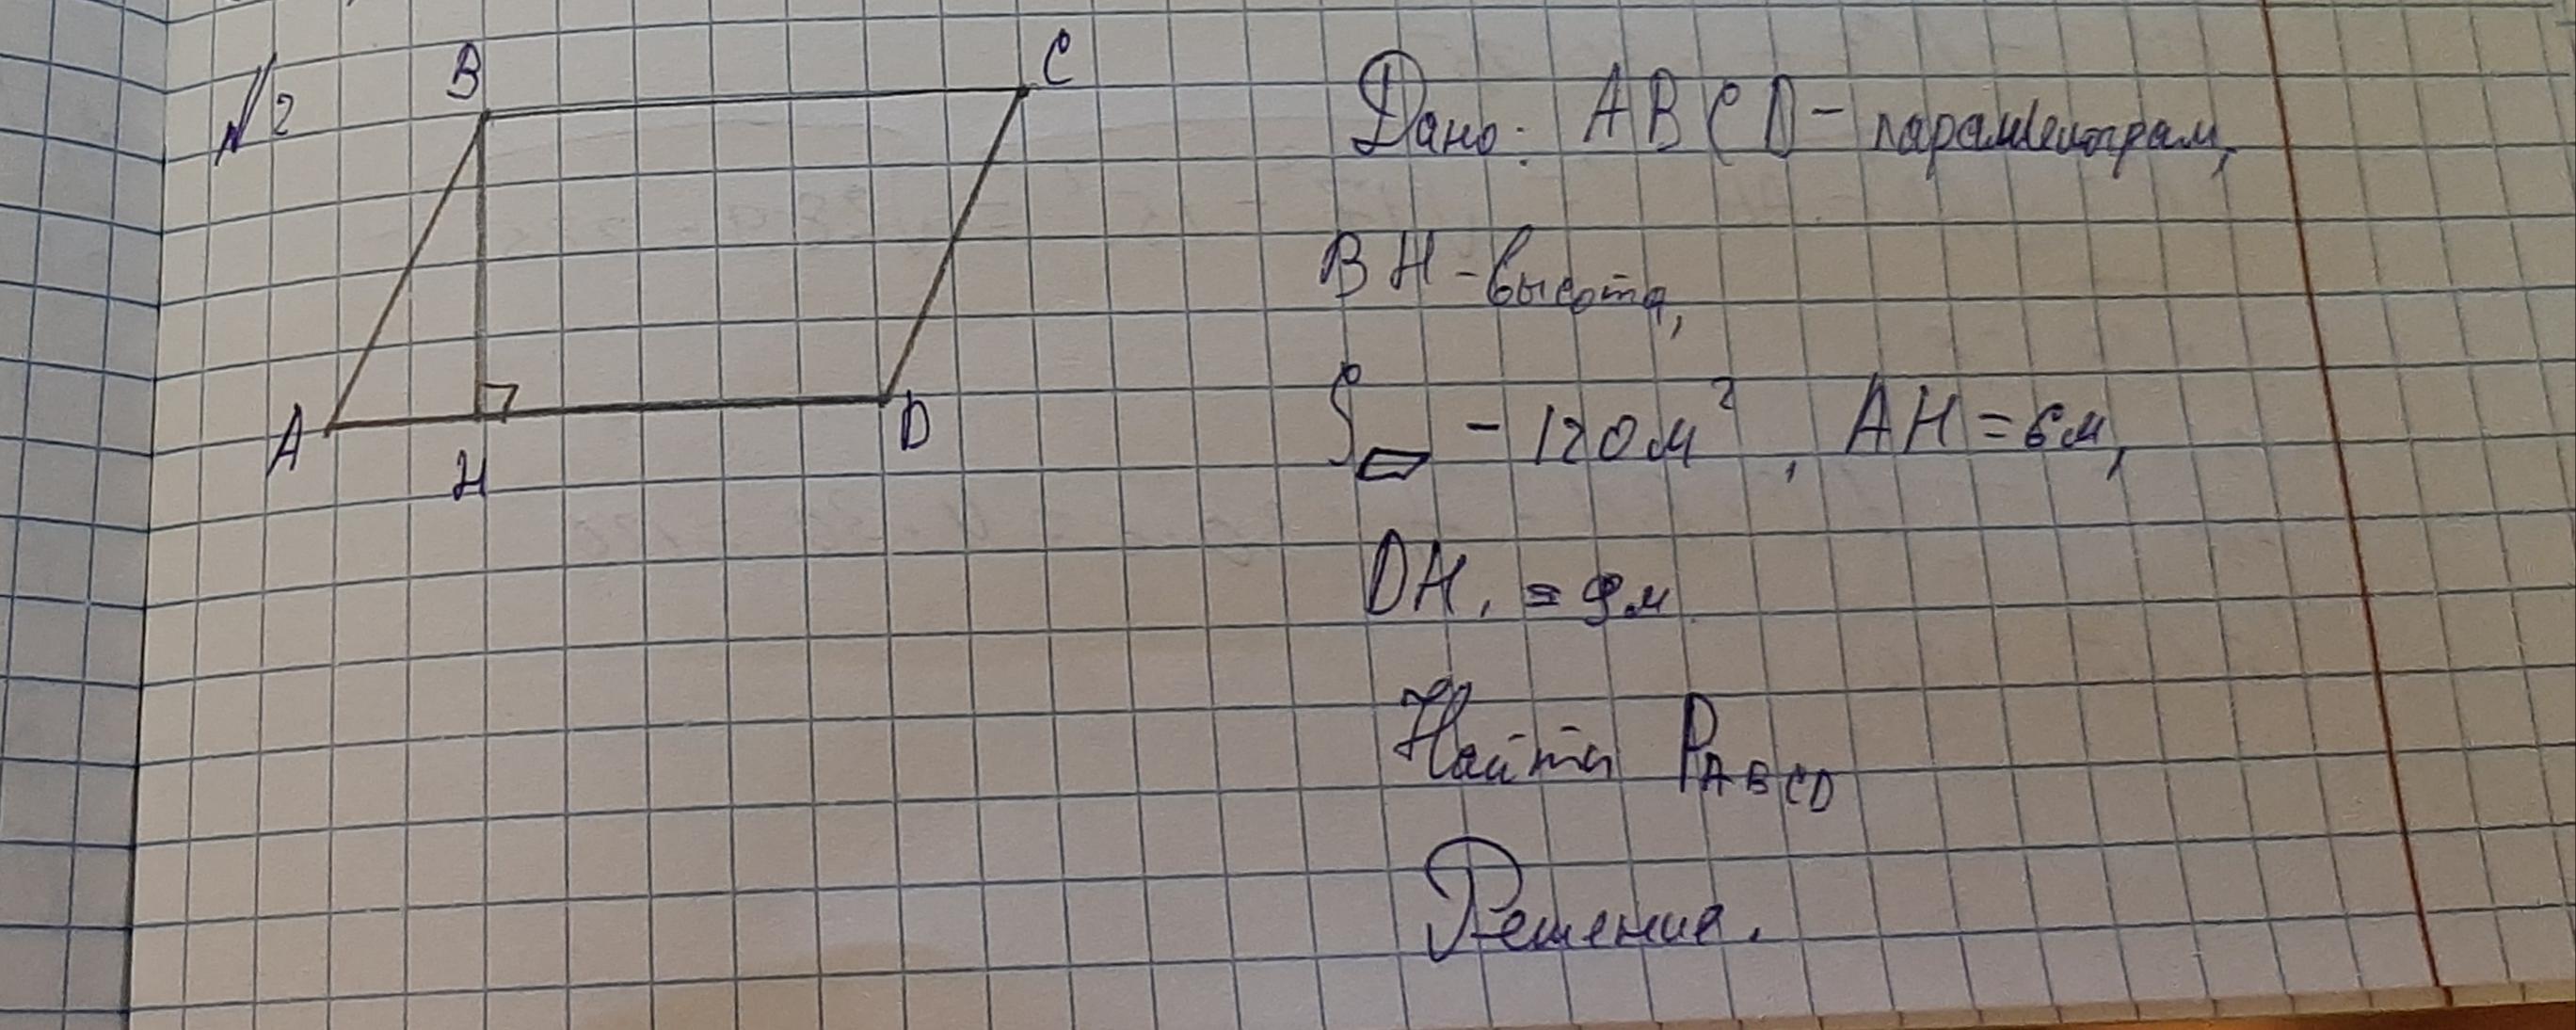 №2
B
C
A
H
D
Дано: ABCD - параллелограм,
BH - высота,
S▱ - 120 м², AH = 6 м,
DH, = 9 м
Найти PABCD
Решение.